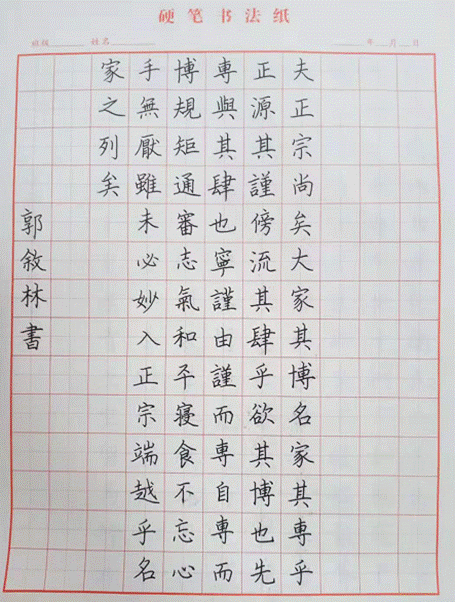 硬笔书法纸
班级 姓名 年 月 日
夫正宗尚矣大家其博名家其專乎
正源其謹傍流其肆乎欲其博也先
專與其肆也寧謹由謹而專自專而
博規矩通審志氣和平寢食不忘心
手無厭雖未必妙入正宗端越乎名
家之列矣
郭敘林書